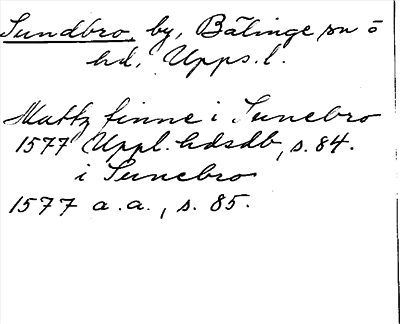 Sundbro, by, Bälinge sn o
hd, Upps. l.
Mattz finne i Sunebro
1577 Uppl. hdsdb, s. 84.
i Sunebro
1577 a.a., s. 85.